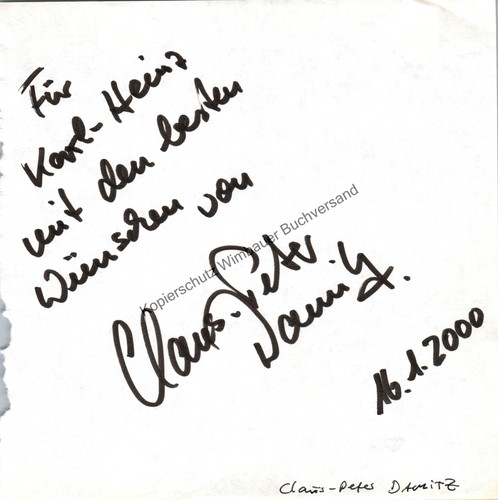 Für
Karl-Heinz
mit den besten
Wünschen von
Claus-Peter
Damitz.
16.1.2000
Claus-Peter DAMITZ
Kopierschutz Wimbauer Buchversand